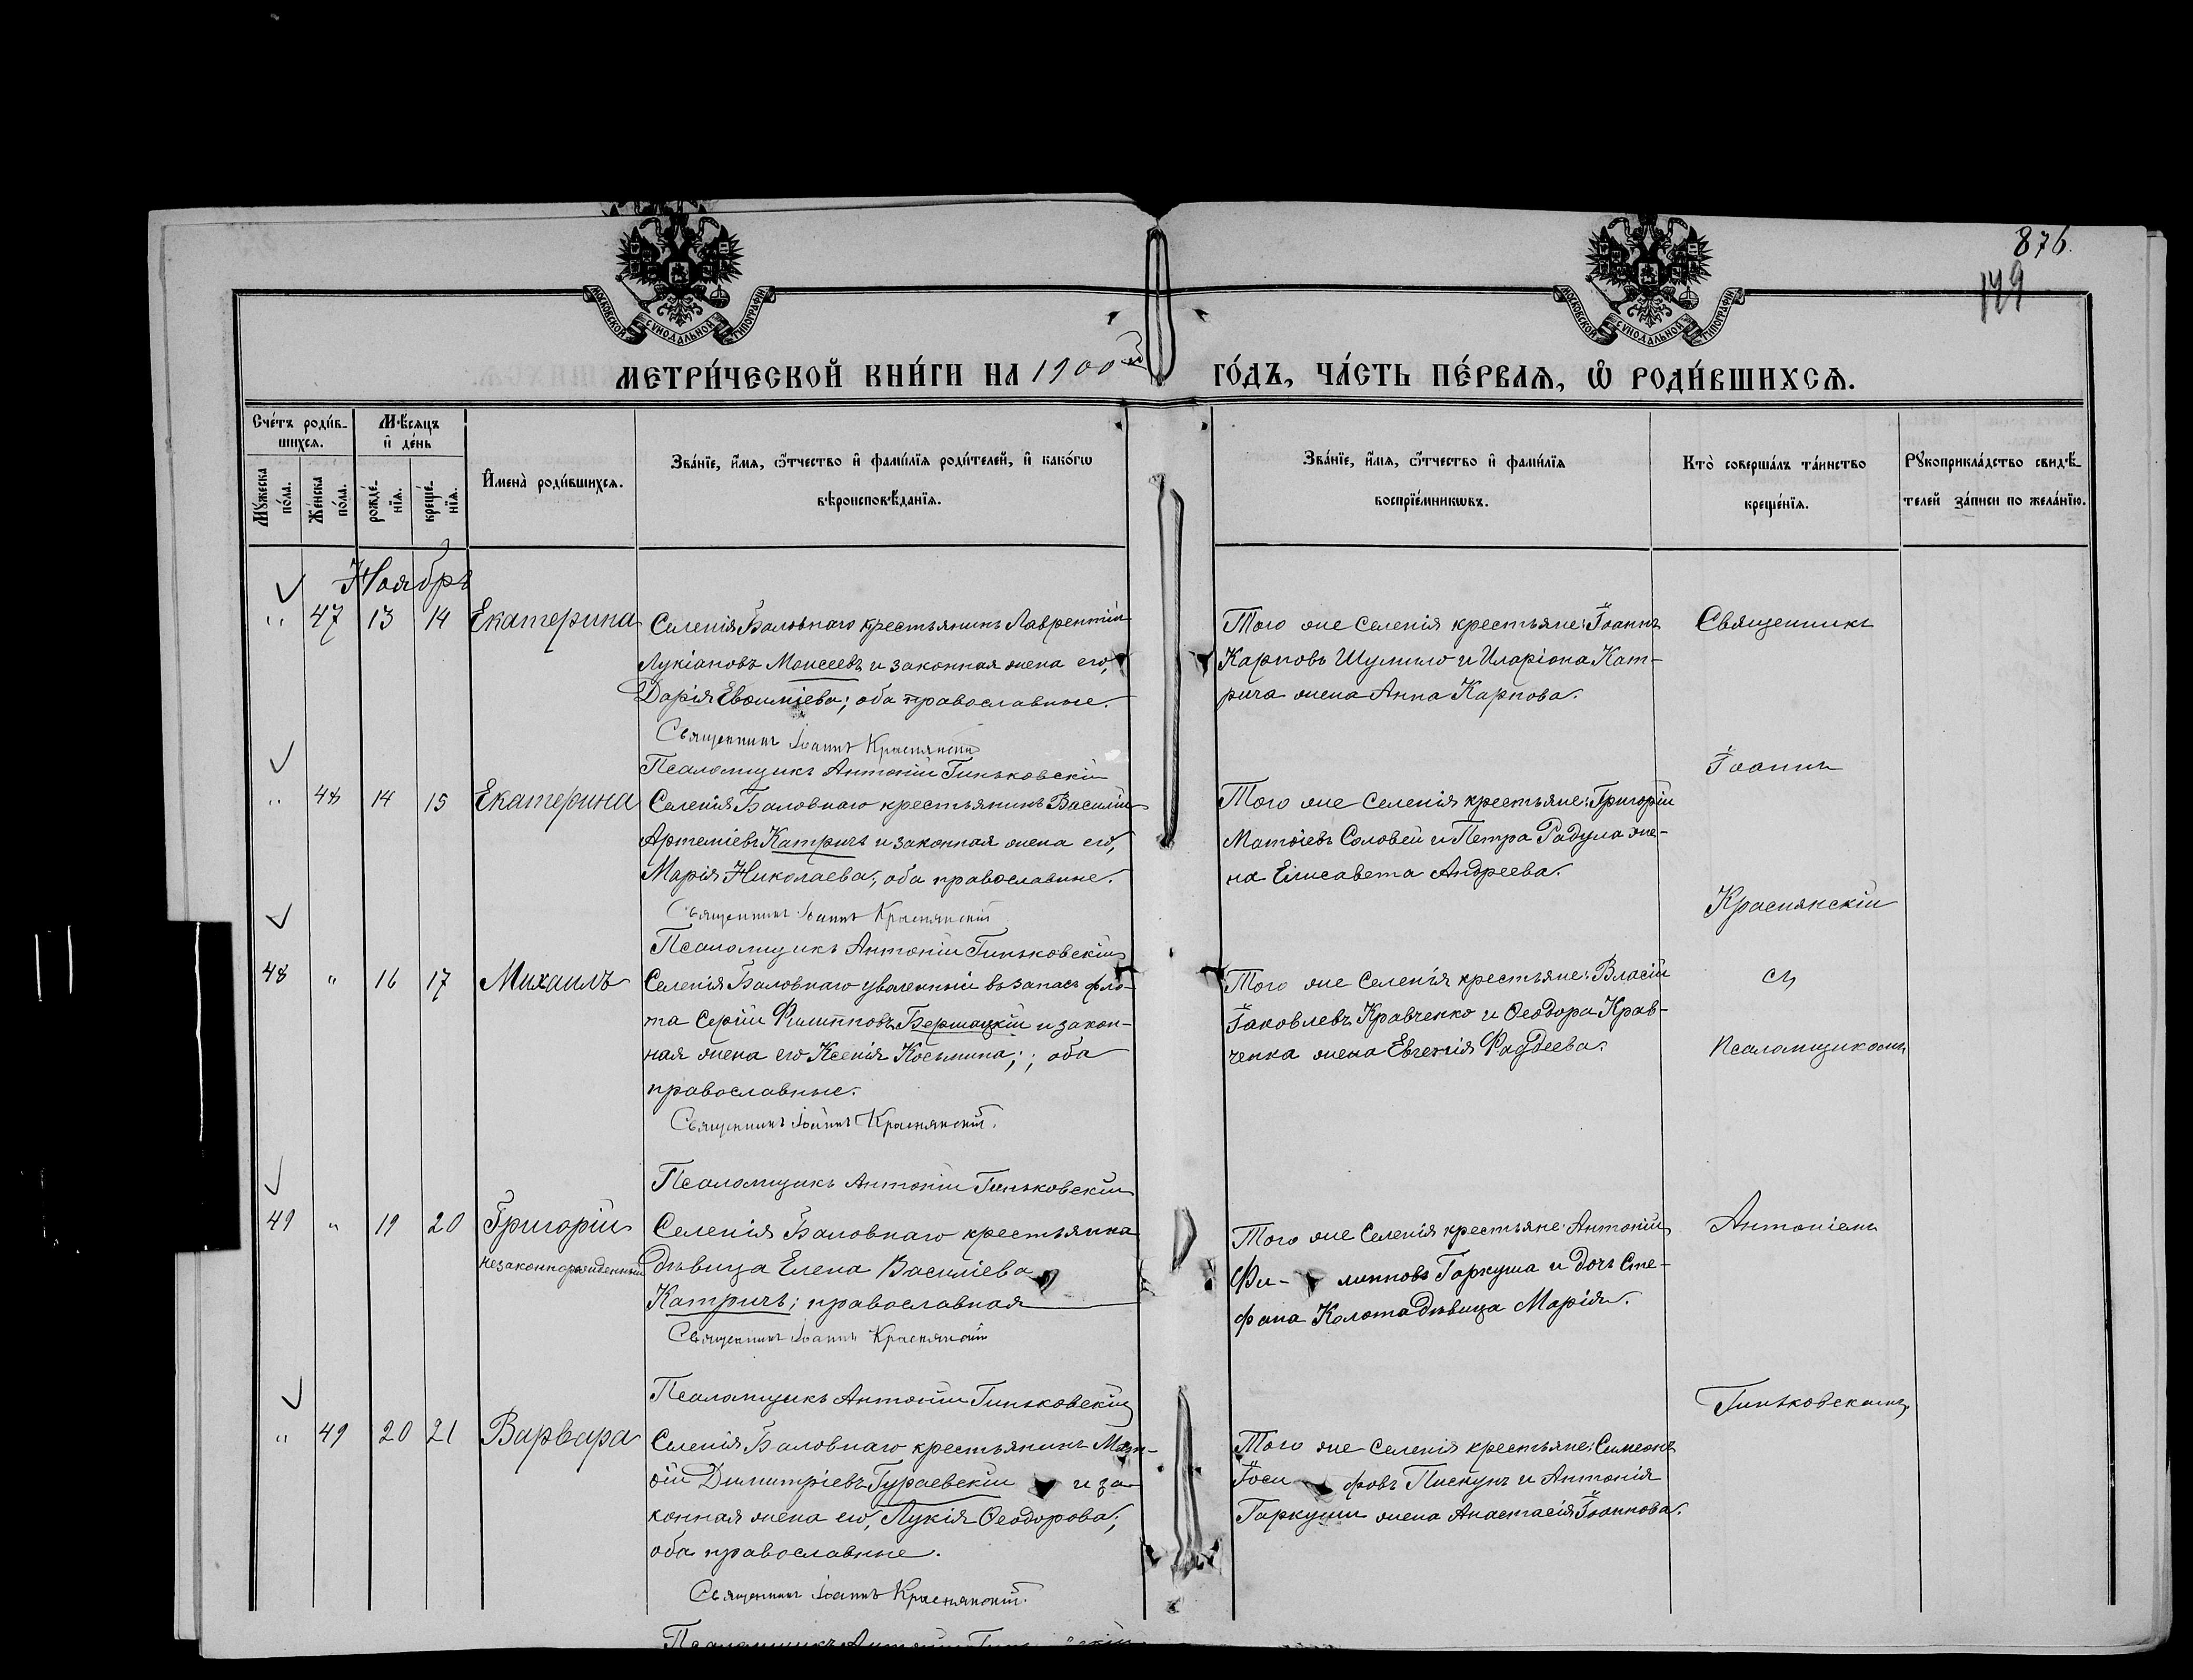 876.
149
МОСКОВСКОЙ СУНОДАЛЬНОЙ ТИПОГРАФІИ
МОСКОВСКОЙ СУНОДАЛЬНОЙ ТИПОГРАФІИ
МЕТРИ́ЧЕСКОЙ КНИ́ГИ НА 1900й ГО́ДЪ, ЧА́СТЬ ПЕ́РВАѦ, Ѽ РОДИ́ВШИХСѦ.
Сче́тъ роди́в-
шихсѧ.
Мꙋ́жеска по́ла.
Же́нска по́ла.
Мѣ́сѧцъ
и҆ де́нь
рожде́-
нїѧ.
креще́-
нїѧ.
И҆мена̀ роди́вшихсѧ.
Зва́нїе, и҆́мѧ, ѻ҆́тчество и҆ фами́лїѧ роди́телей, и҆ како́гѡ
вѣроисповѣ́данїѧ.
Зва́нїе, и҆́мѧ, ѻ҆́тчество и҆ фами́лїѧ
воспрїе́мникѡвъ.
Кто̀ соверша́лъ та́инство
креще́нїѧ.
Рꙋкоприкла́дство свидѣ́-
телей за́писи по жела́нїю.
Ноябрь
" 47 13 14 Екатерина
Селенія Баловнаго крестьянинъ Лаврентій
Лукіановъ Моисеевъ и законная жена его,
Дарія Евѳиміева; оба православные.
Священникъ Іоаннъ Краснянскій
Псаломщикъ Антоній Гиньковскій
Того же селенія крестьяне: Іоаннъ
Карповъ Шумило и Иларіона Кат-
рича жена Анна Карпова.
Священникъ
Іоаннъ
" 48 14 15 Екатерина
Селенія Баловнаго крестьянинъ Василій
Артеміевъ Катричъ и законная жена его,
Марія Николаева; оба православные.
Священникъ Іоаннъ Краснянскій
Псаломщикъ Антоній Гиньковскій
Того же селенія крестьяне: Григорій
Матѳіевъ Соловей и Петра Радула же-
на Елисавета Андреева.
Краснянскій
48 " 16 17 Михаилъ
Селенія Баловнаго уволенный въ запасъ фло-
та Сергій Филипповъ Бершацкій и закон-
ная жена его Ксенія Косьмина; ; оба
православные.
Священникъ Іоаннъ Краснянскій.
Псаломщикъ Антоній Гиньковскій
Того же селенія крестьяне: Власій
Іаковлевъ Кравченко и Ѳеодора Крав-
ченка жена Евгенія Фаддеева.
съ
псаломщикомъ
49 " 19 20 Григорій
незаконнорожденный
Селенія Баловнаго крестьянка
дѣвица Елена Василіева
Катричъ; православная
Священникъ Іоаннъ Краснянскій
Псаломщикъ Антоній Гиньковскій
Того же селенія крестьяне: Антоній
Фи- липповъ Гаркуша и дочь Сте-
фана Колота дѣвица Марія.
Антоніемъ
Гиньковскимъ
" 49 20 21 Варвара
Селенія Баловнаго крестьянинъ Мат-
ѳій Димитріевъ Гураевскій и за-
конная жена его, Лукія Ѳеодорова;
оба православные.
Священникъ Іоаннъ Краснянскій.
Псаломщикъ Антоній
Того же селенія крестьяне: Симеонъ
Іоси фовъ Пискунъ и Антонія
Гаркуши жена Анастасія Іоаннова.